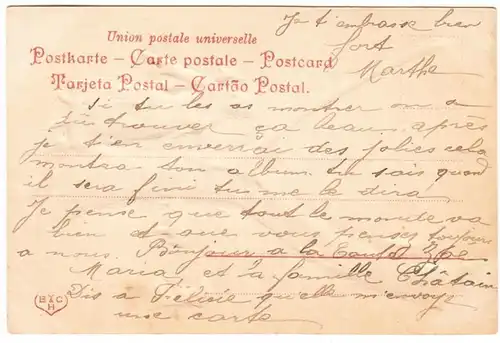 Je t'embrasse bien
fort
Marthe
Union postale universelle
Postkarte – Carte postale – Postcard
Tarjeta Postal – Cartão Postal.
si tu les as montrer on a
dû trouver ça beau. après
je t'en enverrai des jolies cela
montra ton album. tu sais quand
il sera fini tu me le dira,
Je pense que tout le monde va
bien et que vous pensez toujours
a nous. Bonjour a la
Maria et a la famille Châtain
Dis a Félisie qu'elle m'envoye
une carte